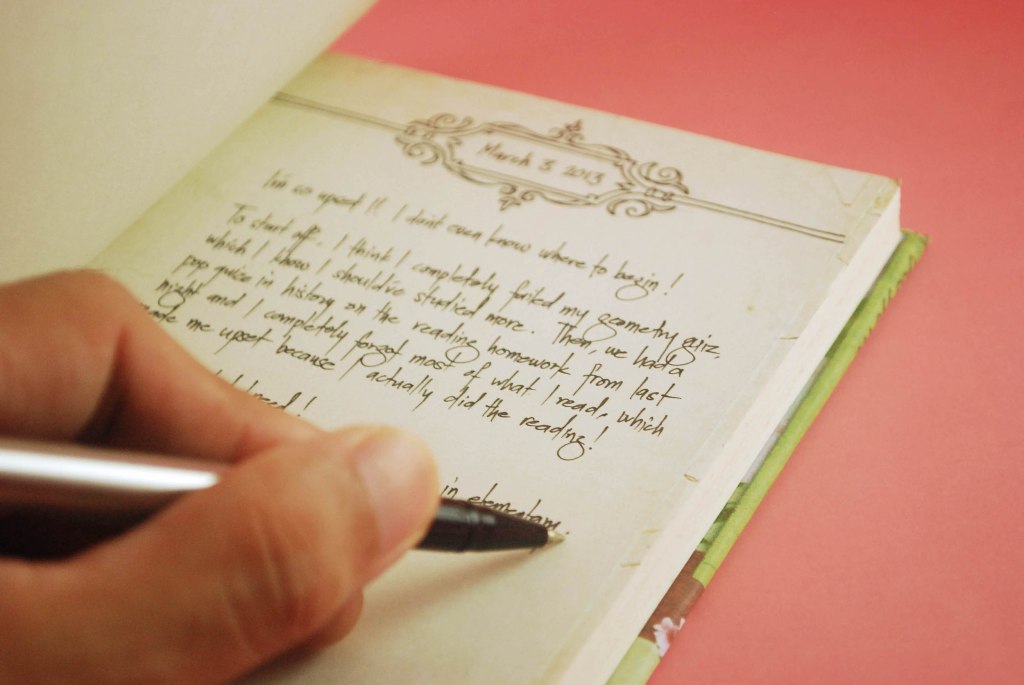 March 3 2013
I'm so upset!! I don't even know where to begin!
To start off. I think I completely failed my geometry quiz,
which I know I should've studied more. Then, we had a
pop quiz in history on the reading homework from last
night and I completely forgot most of what I read, which
made me upset because I actually did the reading!
in elementary.